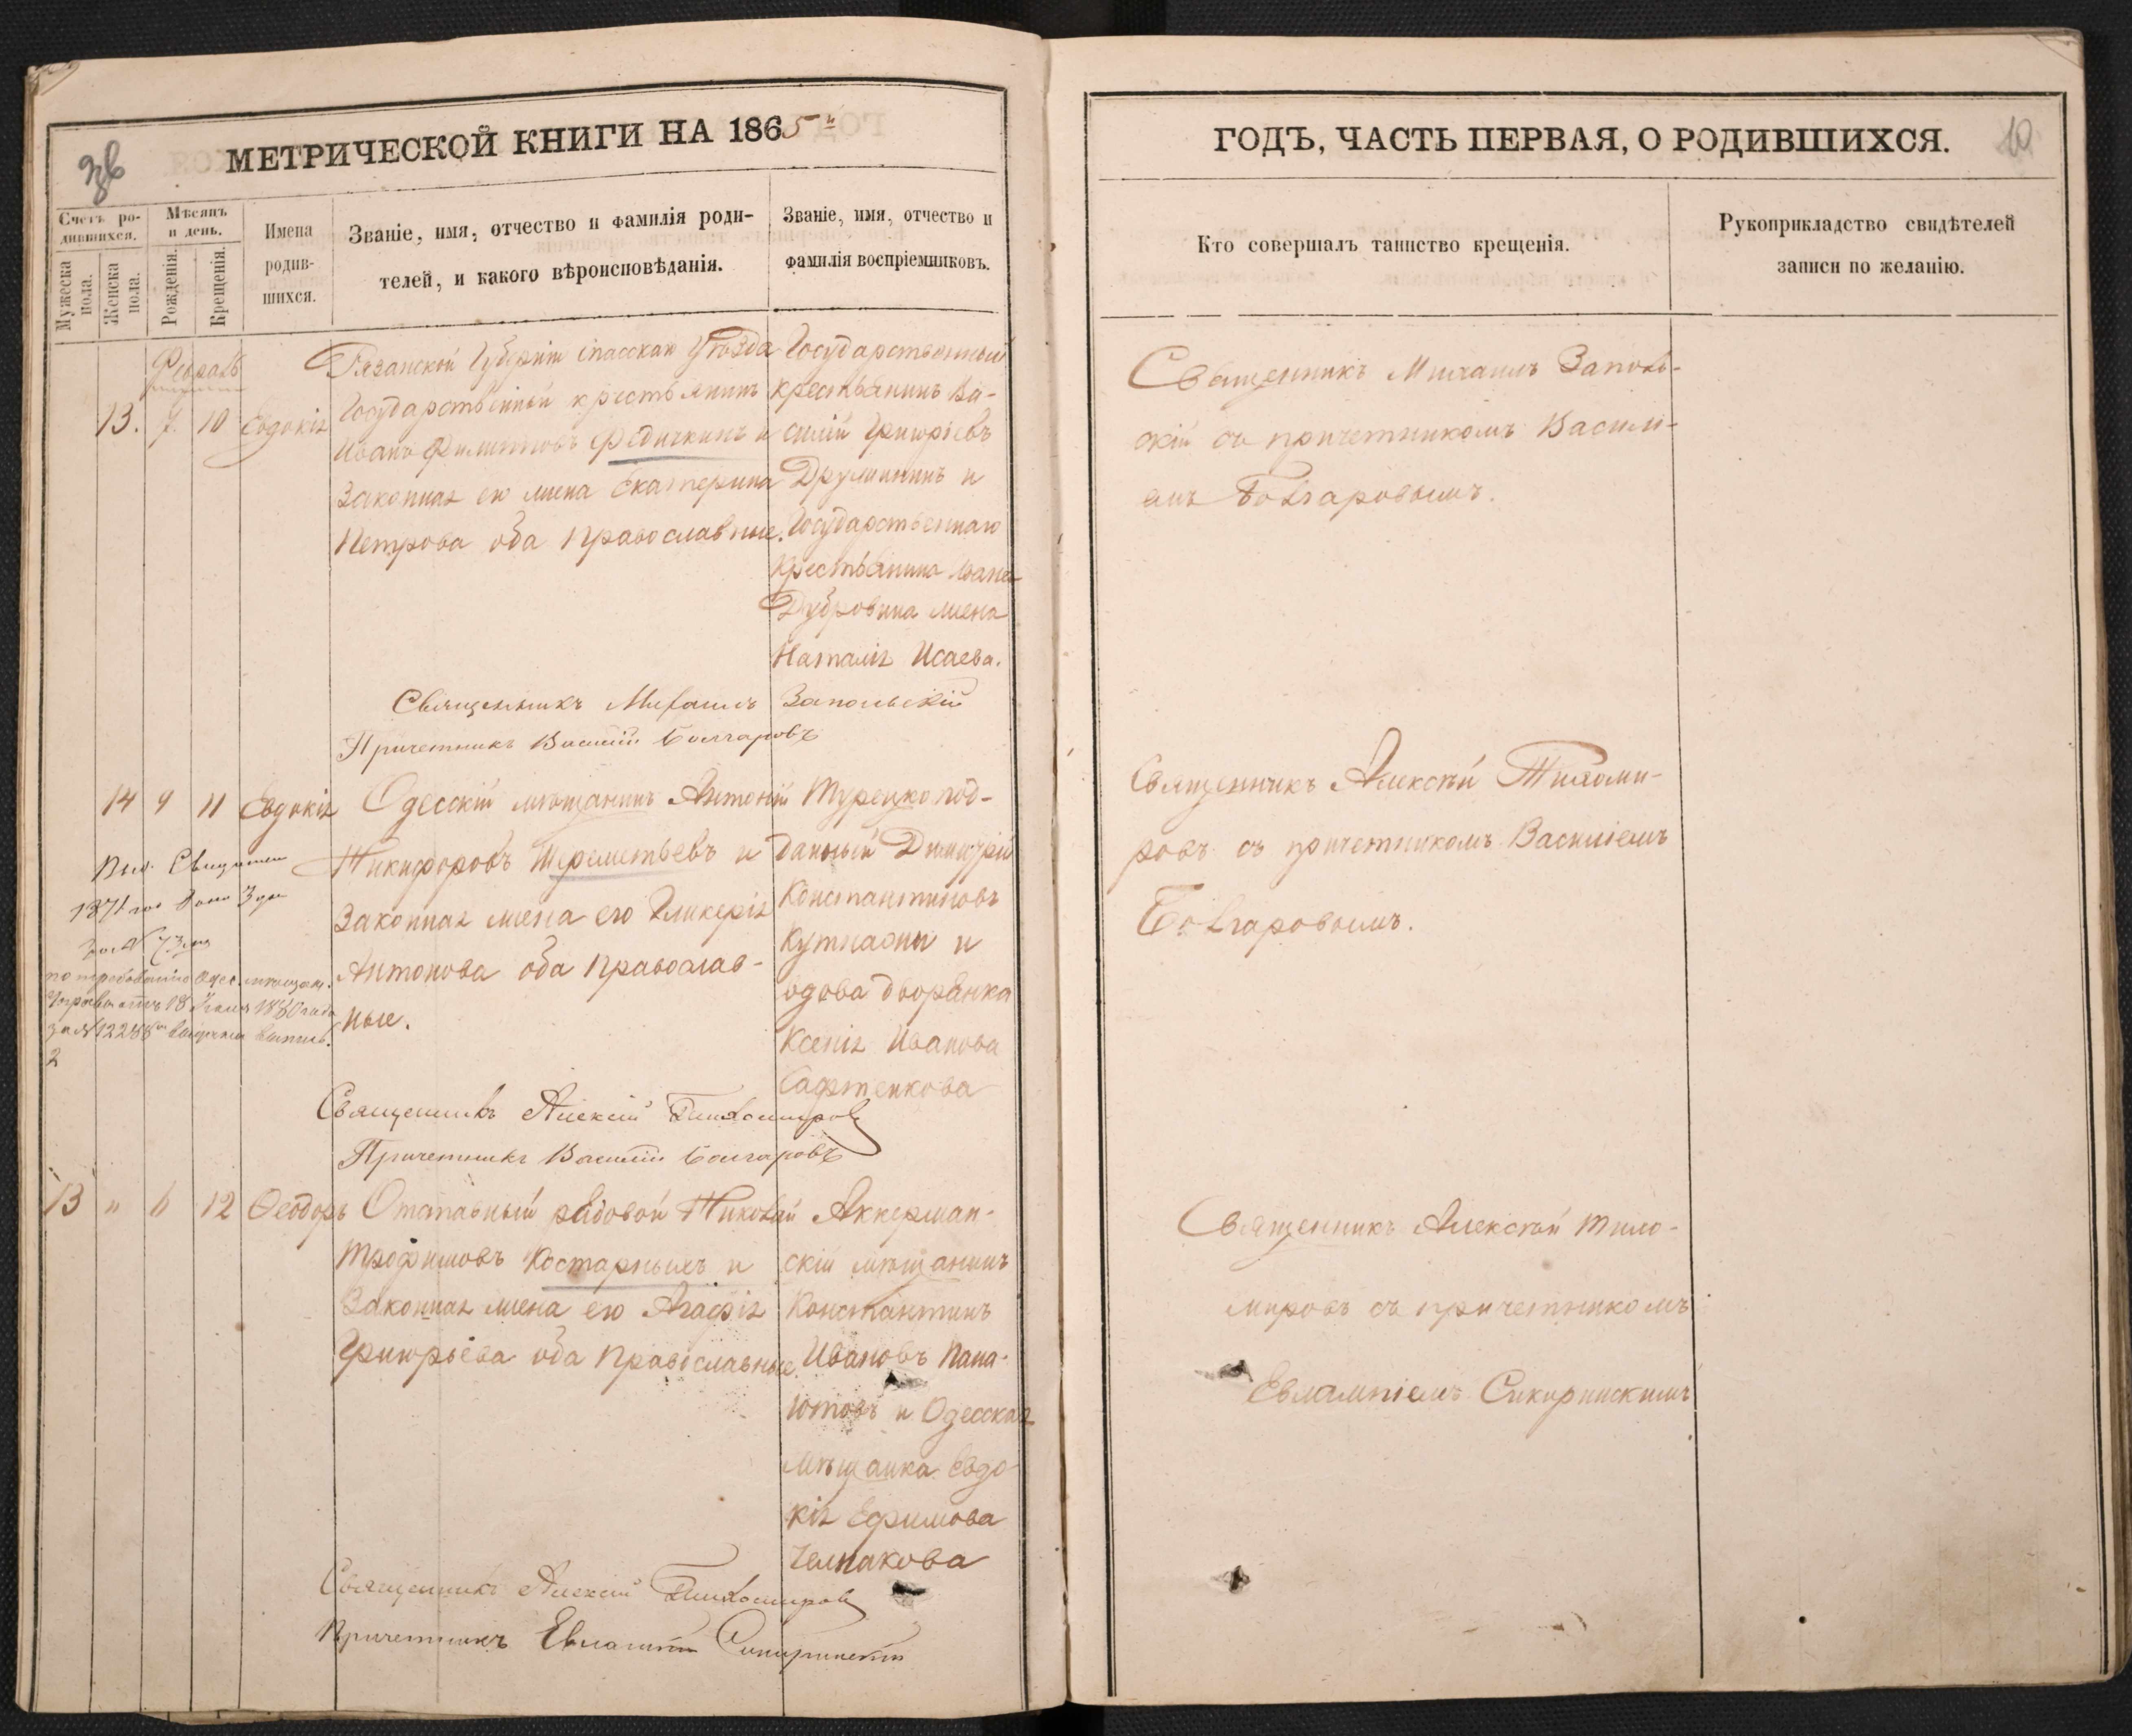 МЕТРИЧЕСКОЙ КНИГИ НА 1865й
Счетъ ро-
дившихся.
Мѣсяцъ
и день.
Мужеска
пола.
Женска
пола.
Рожденія.
Крещенія.
Имена
родив-
шихся.
Званіе, имя, отчество и фамилія роди-
телей, и какого вѣроисповѣданія.
Званіе, имя, отчество и
фамилія воспріемниковъ.
Февраль
13. 7. 10 Евдокія
Рязанской Губерніи спасскаго Уѣзда
Государственный крестьянинъ
Иванъ Филиповъ Федичкинъ и
Законная его жена Екатерина
Петрова оба Православные.
Государственный
крестьянинъ Ва-
силій Григорьевъ
Друминъ и
Государственнаго
Крестьянина Ивана
Дубровина жена
Наталія Исаева.
Священникъ Михаилъ Запольскій
Причетникъ Василій Болгаровъ
14 9 11 Евдокія
Одесскій мѣщанинъ Антоній
Никифоровъ Шереметьевъ и
Законная жена его Гликерія
Антонова оба Православ-
ные.
Турецко под-
данный Димитрій
Константиновъ
и
вдова дворянка
Ксенія Иванова
Сафтенкова
по требованію Одес. мѣщан.
Управы отъ 18 1880 года
за № 12288
2
Священникъ Алексій Тихомиров
Причетникъ Василій Болгаровъ
13 " 6 12 Ѳеодоръ
Отставный рядовой Николай
Трофимовъ Костарныхъ и
Законная жена его Агафія
Григорьева оба Православные.
Аккерман-
скій мѣщанинъ
Константинъ
Ивановъ Пана-
ютовъ и Одесская
мѣщанка Евдо-
кія Ефимова
Челпакова
Священникъ Алексій Тихомиров
Причетникъ Евлампій
ГОДЪ, ЧАСТЬ ПЕРВАЯ, О РОДИВШИХСЯ.
10
Кто совершалъ таинство крещенія.
Рукоприкладство свидѣтелей
записи по желанію.
Священникъ Михаилъ Заполь-
скій съ причетникомъ Васили-
емъ Болгаровымъ.
Священникъ Алексѣй Тихоми-
ровъ съ причетникомъ Василіемъ
Болгаровымъ.
Священникъ Алексѣй Тихо-
мировъ съ причетникомъ
Евлампіемъ